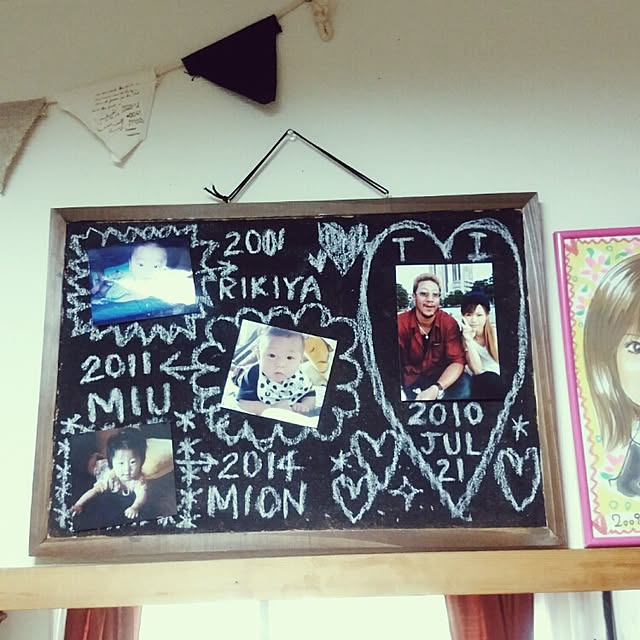 2001
RIKIYA
2011
MIU
2014
MION
T I
2010
JUL
21